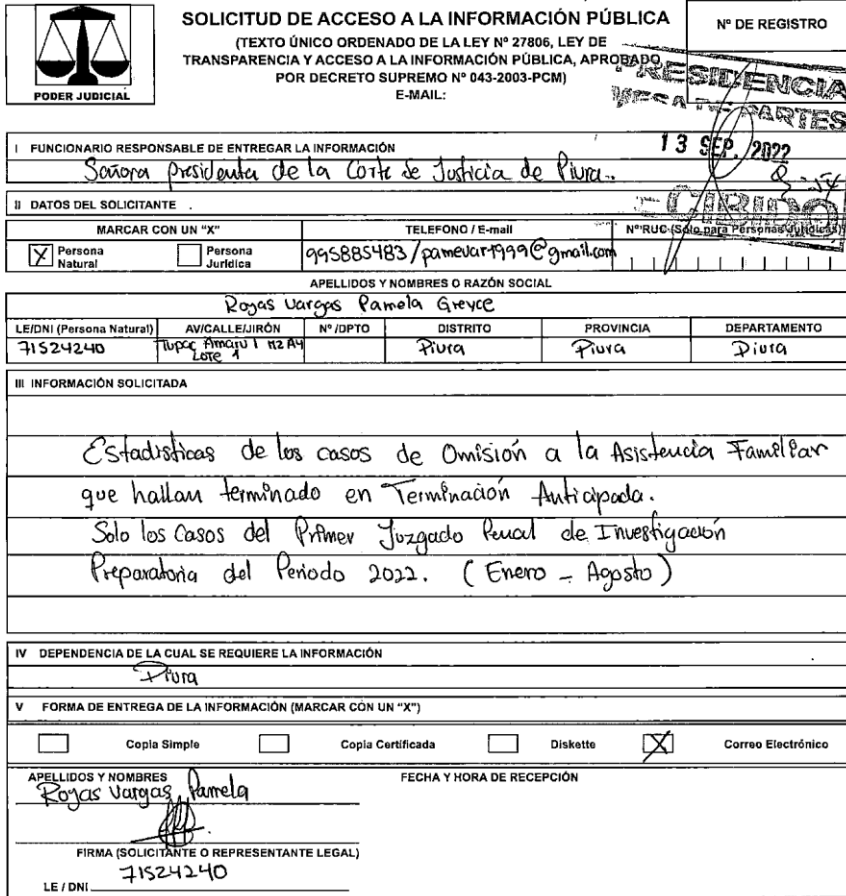 SOLICITUD DE ACCESO A LA INFORMACIÓN PÚBLICA
(TEXTO ÚNICO ORDENADO DE LA LEY Nº 27806, LEY DE
TRANSPARENCIA Y ACCESO A LA INFORMACIÓN PÚBLICA, APROBADO
POR DECRETO SUPREMO Nº 043-2003-PCM)
E-MAIL:
PODER JUDICIAL
Nº DE REGISTRO
PRESIDENCIA
MESA DE PARTES
13 SEP. 2022
RECIBIDO
I FUNCIONARIO RESPONSABLE DE ENTREGAR LA INFORMACIÓN
Señora presidenta de la Corte de Justicia de Piura.
II DATOS DEL SOLICITANTE
MARCAR CON UN "X" TELEFONO / E-mail NºRUC (Sólo para Personas Jurídicas)
X Persona Natural Persona Jurídica 995885483/pamevar1999@gmail.com
APELLIDOS Y NOMBRES O RAZÓN SOCIAL
Rojas Vargas Pamela Greyce
LE/DNI (Persona Natural) AV/CALLE/JIRÓN Nº /DPTO DISTRITO PROVINCIA DEPARTAMENTO
71524240 Tupac Amaru I MZ A4 Lote 1 Piura Piura Piura
III INFORMACIÓN SOLICITADA
Estadísticas de los casos de Omisión a la Asistencia Familiar
que hallan terminado en Terminación Anticipada.
Solo los Casos del Primer Juzgado Penal de Investigación
Preparatoria del Periodo 2022. (Enero - Agosto)
IV DEPENDENCIA DE LA CUAL SE REQUIERE LA INFORMACIÓN
Piura
V FORMA DE ENTREGA DE LA INFORMACIÓN (MARCAR CON UN "X")
Copia Simple Copia Certificada Diskette X Correo Electrónico
APELLIDOS Y NOMBRES FECHA Y HORA DE RECEPCIÓN
Rojas Vargas Pamela
FIRMA (SOLICITANTE O REPRESENTANTE LEGAL)
71524240
LE / DNI